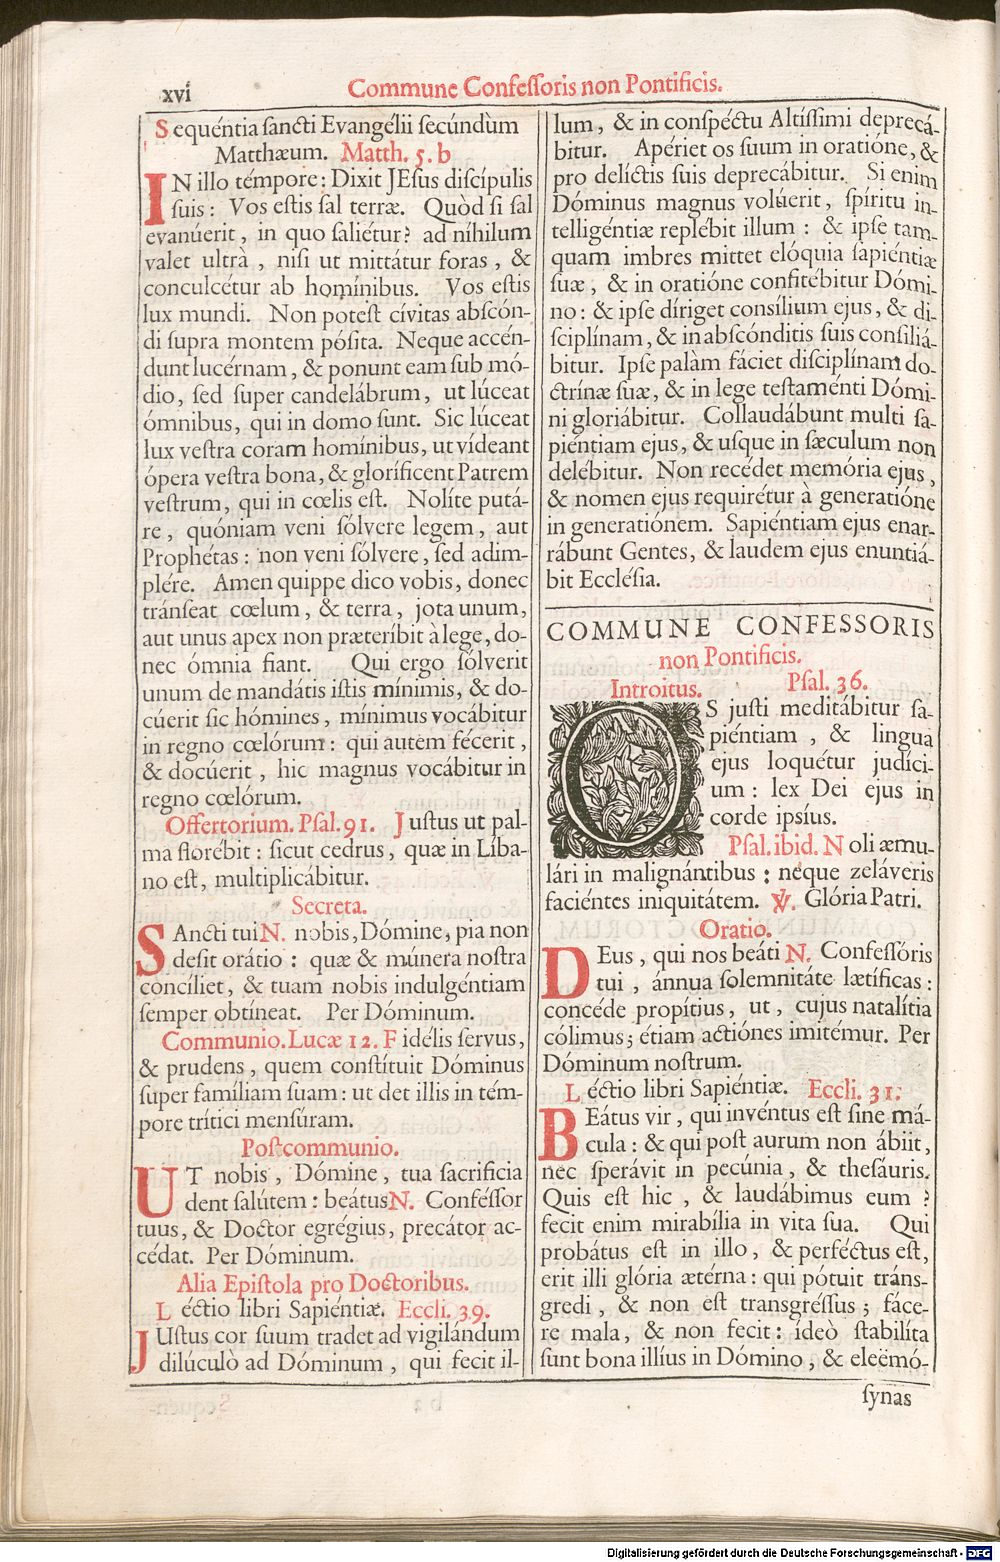 xvi
Commune Confeſſoris non Pontificis.
Sequéntia ſancti Evangélii ſecúndùm
Matthæum. Matth. 5. b
IN illo témpore: Dixit JEſus diſcípulis
ſuis: Vos eſtis ſal terræ. Quòd ſi ſal
evanúerit, in quo ſaliétur? ad níhilum
valet ultrà, niſi ut mittátur foras, &
conculcétur ab homínibus. Vos eſtis
lux mundi. Non poteſt cívitas abſcón-
di ſupra montem póſita. Neque accén-
dunt lucérnam, & ponunt eam ſub mó-
dio, ſed ſuper candelábrum, ut lúceat
ómnibus, qui in domo ſunt. Sic lúceat
lux veſtra coram homínibus, ut vídeant
ópera veſtra bona, & gloríficent Patrem
veſtrum, qui in cœlis eſt. Nolíte putá-
re, quóniam veni ſólvere legem, aut
Prophétas: non veni ſólvere, ſed adim-
plére. Amen quippe dico vobis, donec
tránſeat cœlum, & terra, jota unum,
aut unus apex non præteríbit à lege, do-
nec ómnia fiant. Qui ergo ſólverit
unum de mandátis iſtis mínimis, & do-
cúerit ſic hómines, mínimus vocábitur
in regno cœlórum: qui autèm fécerit,
& docúerit, hic magnus vocábitur in
regno cœlórum.
Offertorium. Pſal. 91. Juſtus ut pal-
ma florébit: ſicut cedrus, quæ in Líba-
no eſt, multiplicábitur.
Secreta.
SAncti tui N. nobis, Dómine, pia non
deſit orátio: quæ & múnera noſtra
concíliet, & tuam nobis indulgéntiam
ſemper obtíneat. Per Dóminum.
Communio. Lucæ 12. Fidélis ſervus,
& prudens, quem conſtítuit Dóminus
ſuper famíliam ſuam: ut det illis in tém-
pore trítici menſúram.
Poſtcommunio.
UT nobis, Dómine, tua sacrificia
dent ſalútem: beátus N. Conféſſor
tuus, & Doctor egrégius, precátor ac-
cédat. Per Dóminum.
Alia Epiſtola pro Doctoribus.
Léctio libri Sapiéntiæ. Eccli. 39.
JUſtus cor ſuum tradet ad vigilándum
dilúculò ad Dóminum, qui fecit il-
lum, & in conſpéctu Altíſſimi deprecá-
bitur. Apériet os ſuum in oratióne, &
pro delíctis ſuis deprecábitur. Si enim
Dóminus magnus volúerit, ſpíritu in-
telligéntiæ replébit illum: & ipſe tam-
quam imbres mittet elóquia ſapiéntiæ
ſuæ, & in oratióne confitébitur Dómi-
no: & ipſe díriget conſílium ejus, & di-
ſciplínam, & in abſcónditis ſuis conſiliá-
bitur. Ipſe palàm fáciet diſciplínam do-
ctrínæ ſuæ, & in lege teſtaménti Dómi-
ni gloriábitur. Collaudábunt multi ſa-
piéntiam ejus, & uſque in ſæculum non
delébitur. Non recédet memória ejus,
& nomen ejus requirétur à generatióne
in generatiónem. Sapiéntiam ejus enar-
rábunt Gentes, & laudem ejus enuntiá-
bit Eccléſia.
COMMUNE CONFESSORIS
non Pontificis.
Introitus. Pſal. 36.
OS juſti meditábitur ſa-
piéntiam, & lingua
ejus loquétur judíci-
um: lex Dei ejus in
corde ipsíus.
Pſal. ibid. Noli æmu-
lári in malignántibus: neque zeláveris
faciéntes iniquitátem. ℣. Glória Patri.
Oratio.
DEus, qui nos beáti N. Confeſſóris
tui, ánnua ſolemnitáte lætíficas:
concéde propítius, ut, cujus natalítia
cólimus; étiam actiónes imitémur. Per
Dóminum noſtrum.
Léctio libri Sapiéntiæ. Eccli. 31.
BEátus vir, qui invéntus eſt ſine má-
cula: & qui poſt aurum non ábiit,
nec ſperávit in pecúnia, & theſáuris.
Quis eſt hic, & laudábimus eum?
fecit enim mirabília in vita ſua. Qui
probátus eſt in illo, & perféctus eſt,
erit illi glória ætérna: qui pótuit tráns-
gredi, & non eſt transgréſſus; fáce-
re mala, & non fecit: ídeò ſtabilíta
ſunt bona illíus in Dómino, & eleëmó-
ſynas
Digitalisierung gefördert durch die Deutsche Forschungsgemeinschaft - DFG